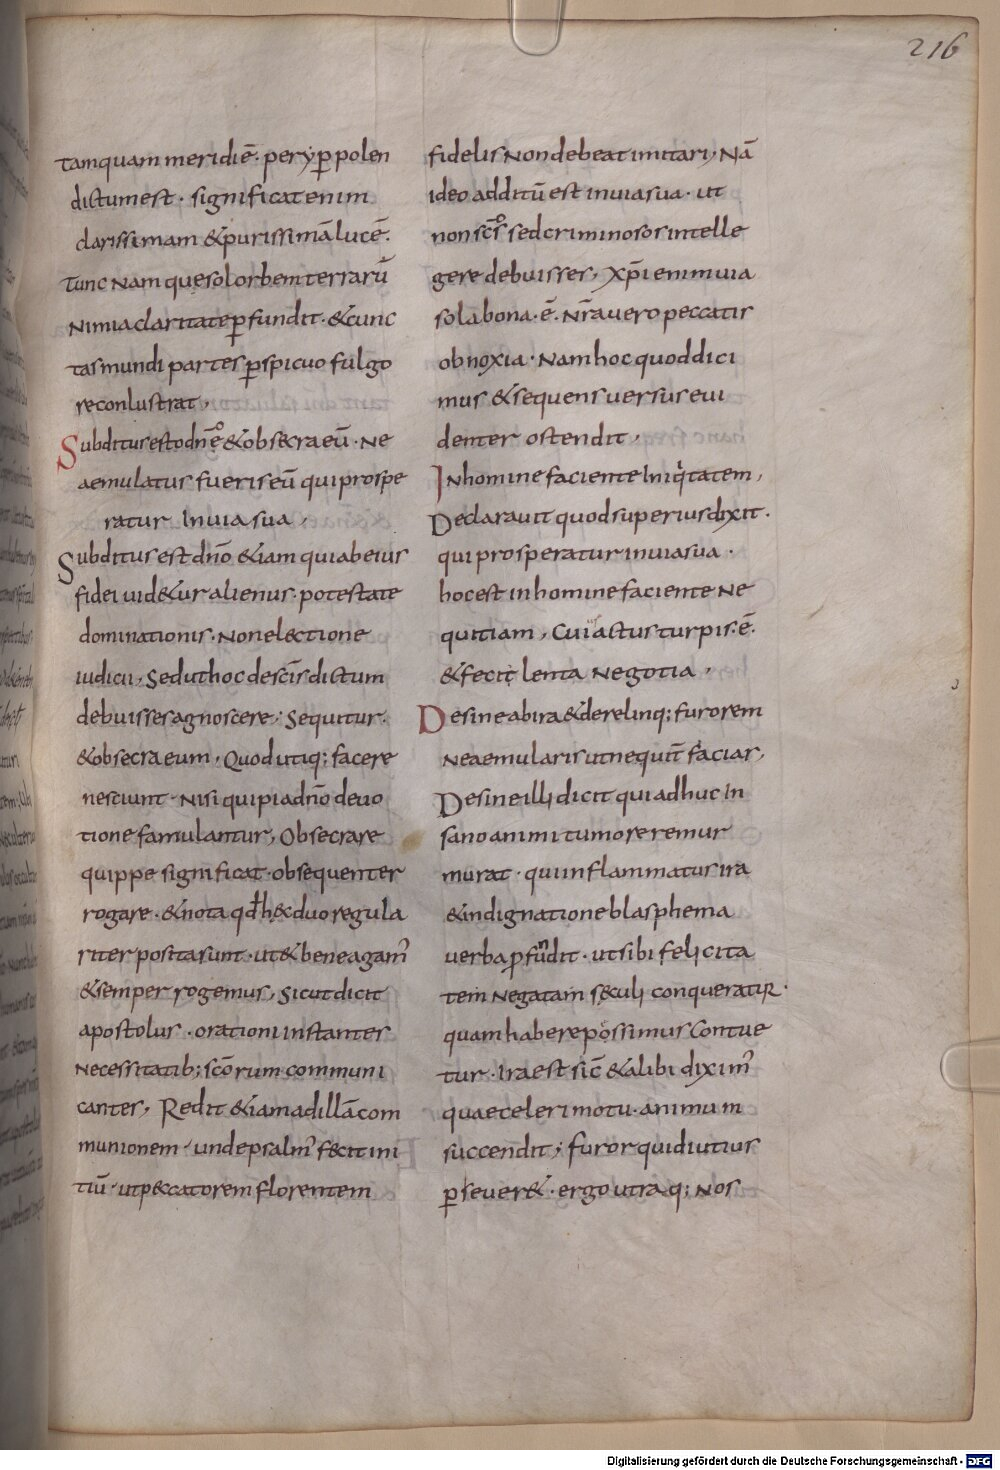 216
tamquam meridiē· per yꝑpolen
dictum est · significat enim
clarissimam &purissimā lucē·
Tunc Namque sol orbem terrarū
Nimia claritate ꝑfundit· &cunc
tas mundi partes ꝑspicuo fulgo
re conlustrat,
Subditus esto dnē &obsecra eū· Ne
aemulatus fueris eū qui prospe
ratur In uia sua,
Subditus est dnō &iam quiab eius
fidei uid&ur alienus· potestate
dominationis· Non electione
iudicii, Sed ut hoc de scīs dictum
debuisses agnoscere, Sequitur·
&obsecra eum, Quod utiq; facere
nesciunt· Nisi qui pia dnō deuo
tione famulantur, Obsecrare
quippe significat· obsequenter
rogare· &nota qđ h&c duo regula
riter posita sunt· ut &bene agam'
&semper rogemus, Sicut dicit
apostolus · orationi instanter
Necessitatib; scōrum communi
cantes, Redit &iam ad illā com
munionem· unde psalm' fecit ini
tiū· ut peccatorem florentem
fidelis Non debeat imitari· Nā
ideo additū est in uia sua· ut
non scōs sed criminosos intelle
gere debuisses, Xp̄i enim uia
sola bona· ē· Nr̄a uero peccatis
obnoxia · Nam hoc quod dici
mus &sequens uersus eui
denter ostendit,
In homine faciente Iniqtatem,
Declarauit quod superius dixit·
qui prosperatur in uia sua·
hoc est in homine faciente Ne
quitiam, Cui actus turpis· ē·
&feculenta Negotia,
Desine ab ira &derelinq; furorem
Ne aemularis ut nequit̄ facias,
Desine illi dicit qui adhuc In
sano animi tumore remur
murat · qui inflammatus ira
&indignatione blasphema
uerba ꝑfundit· ut sibi felicita
tem Negatam sęculi conqueratur·
quam habere possimus Contue
tur· Ira est sic̄ &alibi dixim'
quae celeri motu· animum
succendit; furor qui diutius
ꝑseuer&· ergo utraq; Nos
Digitalisierung gefördert durch die Deutsche Forschungsgemeinschaft - DFG